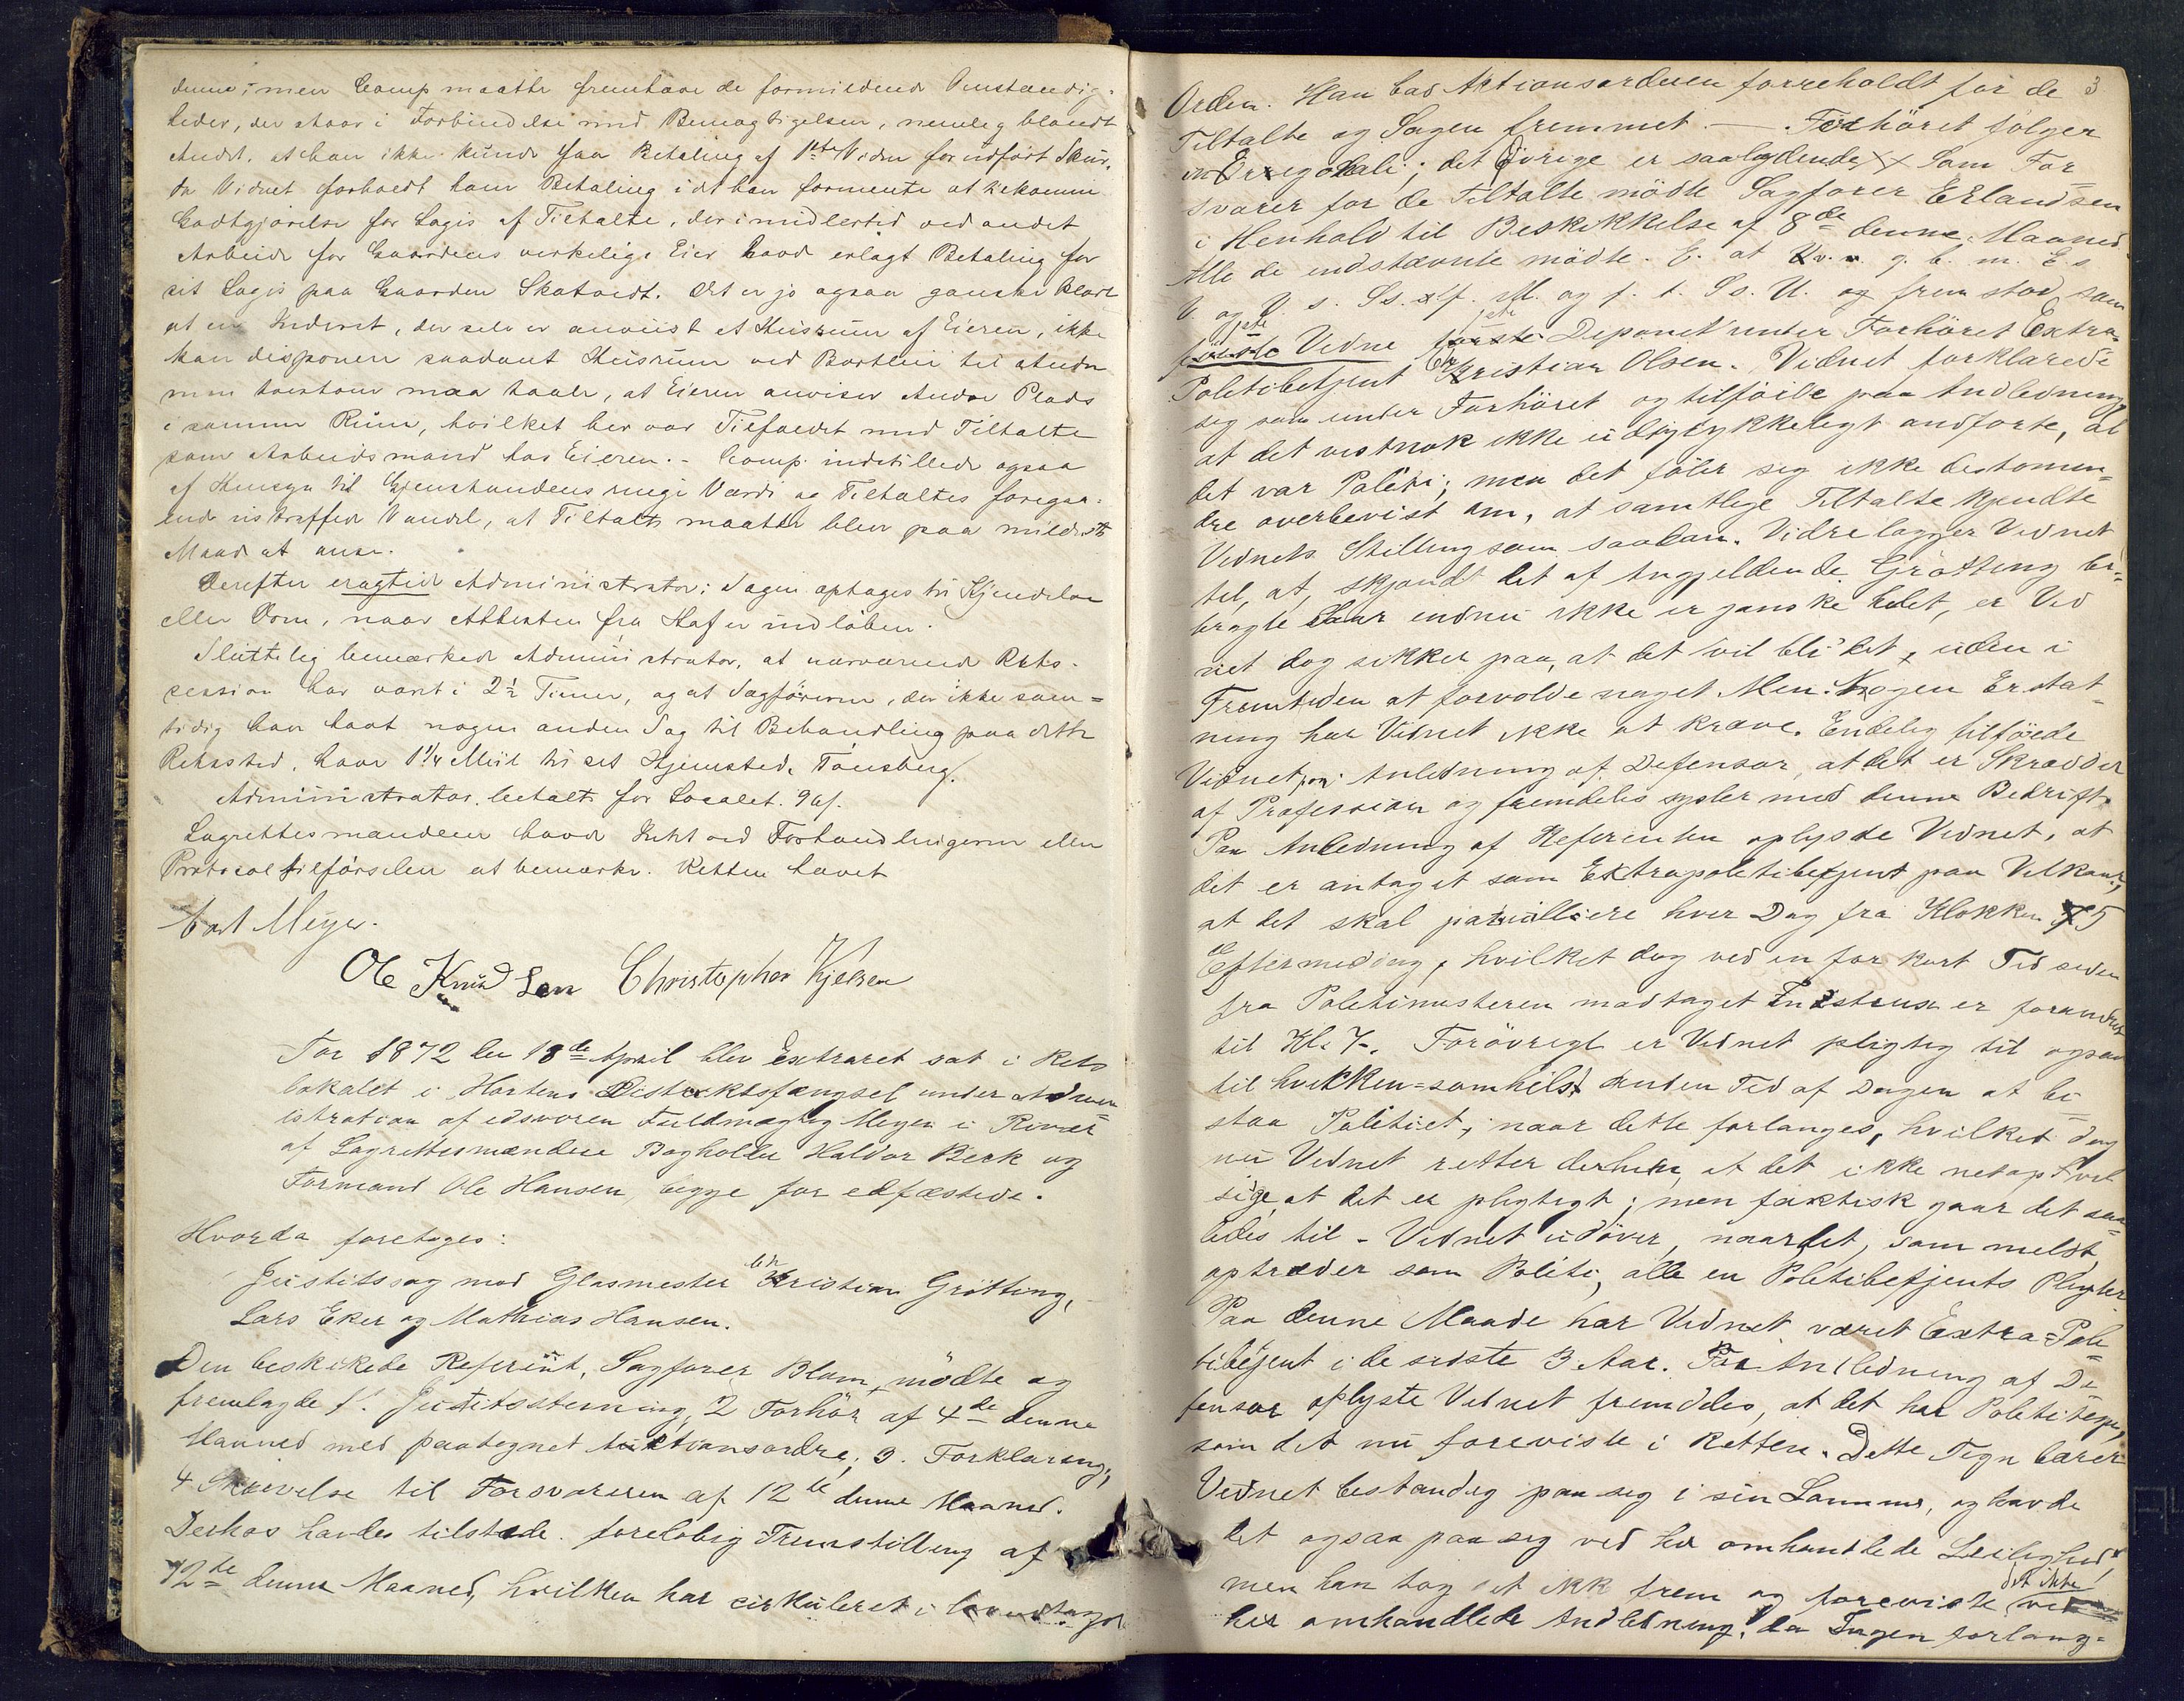 denne; men Comp maatte fremhæve de formildende Omstændig-
heder, der staar i Forbindelse med Bemægtigelsen, nemlig blandt
Andet, at han ikke kunde faa Betaling af 1ste Vidne for udført Skur,
da Vidnet forholdt ham Betaling idet han formente at bekomme
Godtgjørelse for Logis af Tiltalte, der imidlertid ved andet
Arbeide for Gaardens virkelige Eier havde erlagt Betaling for
sit Logis paa Gaarden Skatvedt. Det er jo ogsaa ganske klart
at en Inderst, der selv er anviist et Huusrum af Eieren, ikke
kan disponere saadant Huusrum ved Bortleie til Andre
men tværtom maa taale, at Eieren anviser Andre Plads
i samme Rum, hvilket her var Tilfældet med Tiltalte
som Arbeidsmand hos Eieren. - Comp. indstillede ogsaa
af Hensyn til Gjenstandens ringe Værdi og Tiltaltes foregaa-
ende ustraffede Vandel, at Tiltalte maatte blive paa mildeste
Maade at anse.
Derefter eragted Administrator: Sagen optages til Kjendelse
eller Dom, naar Attesten fra Hof er indløben.
Sluttelig bemærkede Administrator, at nærværende Rets-
session har varet i 2½ Timer, og at Sagføreren, der ikke sam=
tidig har havt nogen anden Sag til Behandling paa dette
Rethssted, haver 1¼ Miil til sit Hjemsted, Tønsberg.
Administrator betalte for Localet. 96 s.
Lagrettesmændene havde Intet ved Forhandlingerne eller
Protocoltilførselen at bemærke. Retten hævet
Carl Meyer.
Ole Knudsen Christopher Kjelsen
Aar 1872 den 18de April blev Extraret sat i Rets
lokalet i Hortens Distriktsfængsel under Admin
istration af edsvoren Fuldmægtig Meyer i Nærvær
af Lagrettesmændene Bogholder Haldor Berk og
Formand Ole Hansen, begge for edfæstede.
Hvorda foretoges:
Justitssag mod Glasmester Christian Grøtting,
Lars Eker og Mathias Hansen.
Den beskikkede Referent, Sagfører Blom, mødte og
fremlagde 1. Justitsstevning, 2 Forhør af 4de denne
Maaned med paategnet Aktionsordre, 3. Forklaring,
4 Skrivelse til Forsvareren af 12te denne Maaned.
Derhos havdes tilstede foreløbig Fremstilling af
12te denne Maaned, hvilken har cirkuleret i
Orden. Han bad Aktionsordenen foreholdt for de 3
Tiltalte og Sagen fremmet. — Forhøret følger
in originali; det Øvrige er saalydende Som For
svarer for de Tiltalte mødte Sagfører Erlandsen
i Henhold til Beskikkelse af 8de denne Maaned.
Alle de indstævnte mødte. E. at V. v. g. b. m. E s
V. og V. s. Ss. og f. t. Ss. U. og frem stod som
første Vidne første Deponent under Forhøret Extra-
Politibetjent Christian Olsen. Vidnet forklarede
sig som under Forhøret og tilføiede paa Anledning
at det vistnok ikke udtrykkeligt anførte, at
det var Politi; men det føler sig ikke destomin-
dre overbevist om, at samtlige Tiltalte kjendte
Vidnets Stilling som saadan. Vidre lægger Vidnet
til, at, skjøndt det af Angjeldende Grøtting bi-
bragte Saar endnu ikke er ganske helet, er Vid
net dog sikker paa, at det vil bli det, uden i
Fremtiden at forvolde noget Men. Nogen Erstat-
ning har Vidnet ikke at kræve. Endelig tilføiede
Vidnet paa Anledning af Defensor, at det er Skrædder
af Profession og fremdeles sysler med denne Bedrift.
Paa Anledning af Referenten oplyste Vidnet, at
det er antaget som Extrapolitibetjent paa Vilkaar,
at det skal patruillere hver Dag fra Klokken 5
Eftermiddag, hvilket dog ved en for kort Tid siden
fra Politimesteren modtaget Instrux er forandret
til Kl. 7. Forøvrigt er Vidnet pligtig til ogsaa
til hvilken-somhelst anden Tid af Dagen at bi
staa Politiet, naar dette forlanges, hvilket dog
nu Vidnet retter derhen, at det ikke netop vil
sige, at det er pligtigt; men faktisk gaar det saa-
ledes til - Vidnet udøver, naar det, som meldt,
optræder som Politi, alle en Politibetjents Pligter
Paa denne Maade har Vidnet været Extra-Poli
tibetjent i de sidste 3 Aar. Paa Anledning af De
fensor oplyste Vidnet fremdeles, at det har Polititegn,
som det nu foreviste i Retten. Dette Tegn bærer
Vidnet bestandig paa sig i sin Lomme, og havde
det ogsaa paa sig ved den omhandlede Leilighed,
men han tog det ikke frem og foreviste det ikke ved
her omhandlede Anledning, da Ingen forlang-